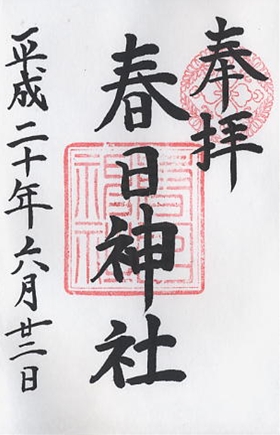 奉拝
春日神社
平成二十年六月廿二日